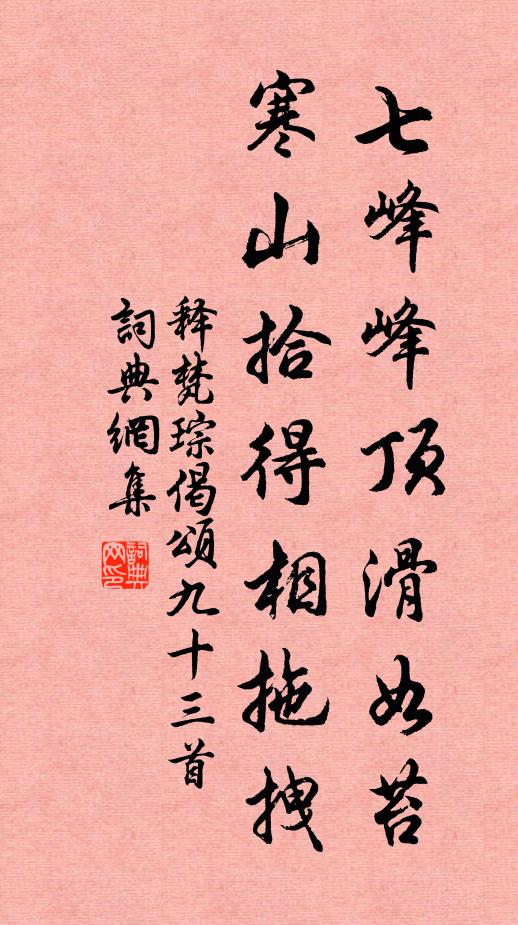 七峰峰顶滑如苔
寒山拾得相拖拽
释梵琮偈頌九十三首
詞典網集
詞典
网印